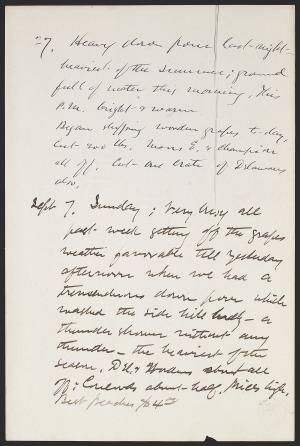 27. Heavy down pour last night -
heaviest of the summer; ground
full of water this morning. This
P.M. bright & warm
Began shipping wooden grapes to-day,
Cut 200 lbs. Moores E. & Champion
all off. Cut one crate of Delawares
also.
Sept 7. Sunday; Very busy all
past week getting off the grapes
weather favorable till yesterday
afternoon when we had a
tremendous down pour which
washed the side hill badly - a
thunder shower without any
thunder - the heaviest of the
season. Del. & Wordens about all
off; Concords about half. Prices high.
Best Peaches